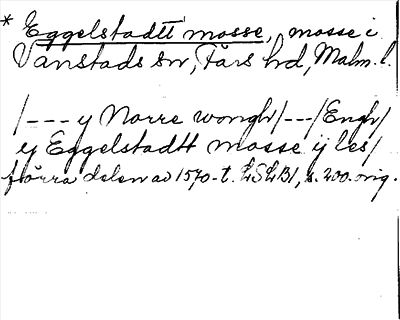 * Eggelstadtt mosse, mosse i
Vanstads sn, Färs hd, Malm. l.
/--- y Norre wongh/---/Engh/
ey Eggelstadtt mosse ÿ les/
förra delen av 1570-t. LSLB1, s. 200. orig.